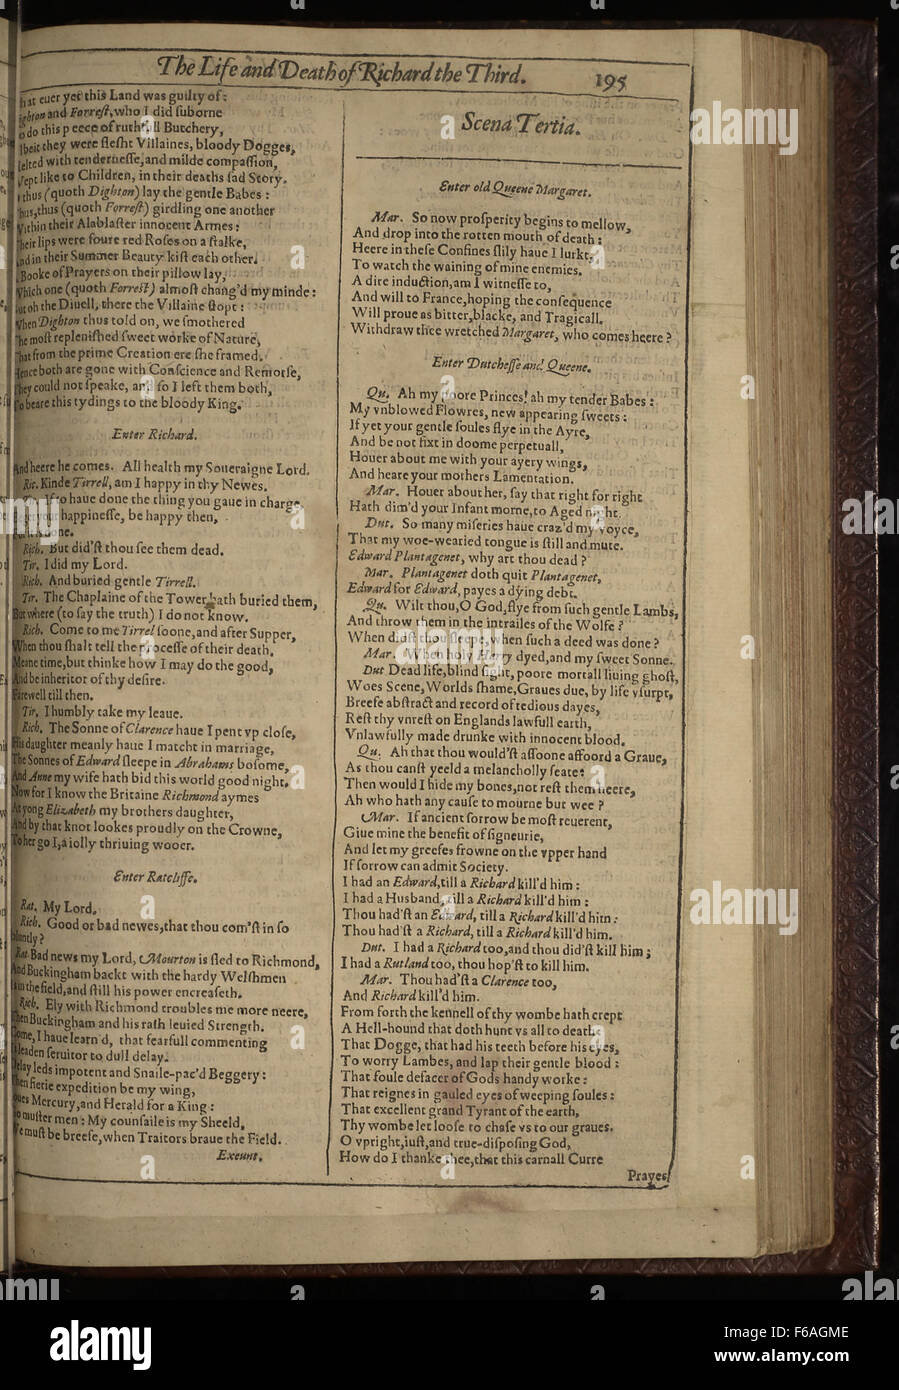 The Life and Death of Richard the Third. 195
hat euer yet this Land was guilty of:
ighton and Forrest, who I did suborne
o do this peece of ruthfull Butchery,
lbeit they were flesht Villaines, bloody Dogges,
elted with tendernesse, and milde compassion,
ept like to Children, in their deaths sad Story.
thus (quoth Dighton) lay the gentle Babes:
hus, thus (quoth Forrest) girdling one another
Within their Alablaster innocent Armes:
heir lips were foure red Roses on a stalke,
nd in their Summer Beauty kist each other.
Booke of Prayers on their pillow lay,
Which one (quoth Forrest) almost chang'd my minde:
ut oh the Diuell, there the Villaine stopt:
When Dighton thus told on, we smothered
he most replenished sweet worke of Nature,
hat from the prime Creation ere she framed.
Hence both are gone with Conscience and Remorse,
hey could not speake, and so I left them both,
o beare this tydings to the bloody King.
Enter Richard.
And heere he comes. All health my Soueraigne Lord.
Ric. Kinde Tirrell, am I happy in thy Newes.
If to haue done the thing you gaue in charge
your happinesse, be happy then,
Rich. But did'st thou see them dead.
Tir. I did my Lord.
Rich. And buried gentle Tirrell.
Tir. The Chaplaine of the Tower hath buried them,
But where (to say the truth) I do not know.
Rich. Come to me Tirrel soone, and after Supper,
When thou shalt tell the processe of their death.
Meane time, but thinke how I may do the good,
And be inheritor of thy desire.
Farewell till then.
Tir. I humbly take my leaue.
Rich. The Sonne of Clarence haue I pent vp close,
His daughter meanly haue I matcht in marriage,
The Sonnes of Edward sleepe in Abrahams bosome,
And Anne my wife hath bid this world good night.
Now for I know the Britaine Richmond aymes
At yong Elizabeth my brothers daughter,
And by that knot lookes proudly on the Crowne,
To her go I, a iolly thriuing wooer.
Enter Ratcliffe.
Rat. My Lord.
Rich. Good or bad newes, that thou com'st in so
bluntly?
Rat. Bad news my Lord, Mourton is fled to Richmond,
And Buckingham backt with the hardy Welshmen
in the field, and still his power encreaseth.
Rich. Ely with Richmond troubles me more neere,
hen Buckingham and his rash leuied Strength.
Come, I haue learn'd, that fearfull commenting
leaden seruitor to dull delay.
elay leds impotent and Snaile-pac'd Beggery:
hen fierie expedition be my wing,
oues Mercury, and Herald for a King:
o muster men: My counsaile is my Sheeld,
e must be breefe, when Traitors braue the Field.
Exeunt.
Scena Tertia.
Enter old Queene Margaret.
Mar. So now prosperity begins to mellow,
And drop into the rotten mouth of death:
Heere in these Confines slily haue I lurkt,
To watch the waining of mine enemies.
A dire induction, am I witnesse to,
And will to France, hoping the consequence
Will proue as bitter, blacke, and Tragicall.
Withdraw thee wretched Margaret, who comes heere?
Enter Dutchesse and Queene.
Qu. Ah my poore Princes! ah my tender Babes:
My vnblowed Flowres, new appearing sweets:
If yet your gentle soules flye in the Ayre,
And be not fixt in doome perpetuall,
Houer about me with your ayery wings,
And heare your mothers Lamentation.
Mar. Houer about her, say that right for right
Hath dim'd your Infant morne, to Aged night.
Dut. So many miseries haue craz'd my voyce,
That my woe-wearied tongue is still and mute.
Edward Plantagenet, why art thou dead?
Mar. Plantagenet doth quit Plantagenet,
Edward for Edward, payes a dying debt.
Qu. Wilt thou, O God, flye from such gentle Lambs,
And throw them in the intrailes of the Wolfe?
When didst thou sleepe, when such a deed was done?
Mar. When holy Harry dyed, and my sweet Sonne.
Dut Dead life, blind sight, poore mortall liuing ghost,
Woes Scene, Worlds shame, Graues due, by life vsurpt,
Breefe abstract and record of tedious dayes,
Rest thy vnrest on Englands lawfull earth,
Vnlawfully made drunke with innocent blood.
Qu. Ah that thou would'st assoone affoord a Graue,
As thou canst yeeld a melancholly seate:
Then would I hide my bones, not rest them heere,
Ah who hath any cause to mourne but wee?
Mar. If ancient sorrow be most reuerent,
Giue mine the benefit of signeurie,
And let my greefes frowne on the vpper hand
If sorrow can admit Society.
I had an Edward, till a Richard kill'd him:
I had a Husband, till a Richard kill'd him:
Thou had'st an Edward, till a Richard kill'd him:
Thou had'st a Richard, till a Richard kill'd him.
Dut. I had a Richard too, and thou did'st kill him;
I had a Rutland too, thou hop'st to kill him.
Mar. Thou had'st a Clarence too,
And Richard kill'd him.
From forth the kennell of thy wombe hath crept
A Hell-hound that doth hunt vs all to death:
That Dogge, that had his teeth before his eyes,
To worry Lambes, and lap their gentle blood:
That foule defacer of Gods handy worke:
That reignes in gauled eyes of weeping soules:
That excellent grand Tyrant of the earth,
Thy wombe let loose to chase vs to our graues.
O vpright, iust, and true-disposing God,
How do I thanke thee, that this carnall Curre
Prayes
alamy
Image ID: F6AGME
www.alamy.com